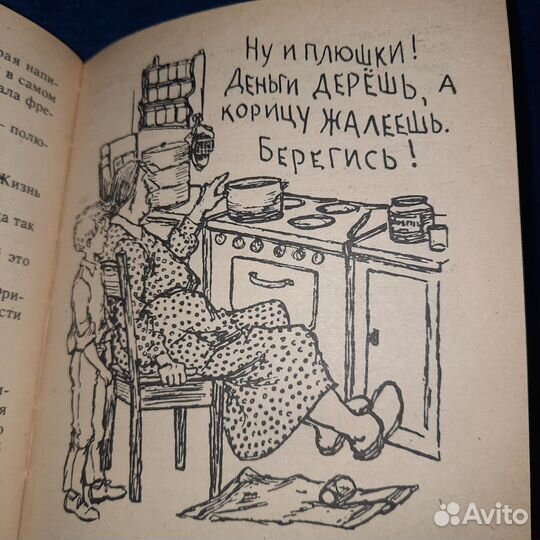 рая напи-
в самом
ала фре-
— полю-
Жизнь
да так
это
ри-
сти
и-
я
о
Ну и плюшки!
Деньги дерёшь, а
корицу жалеешь.
Берегись!
Avito